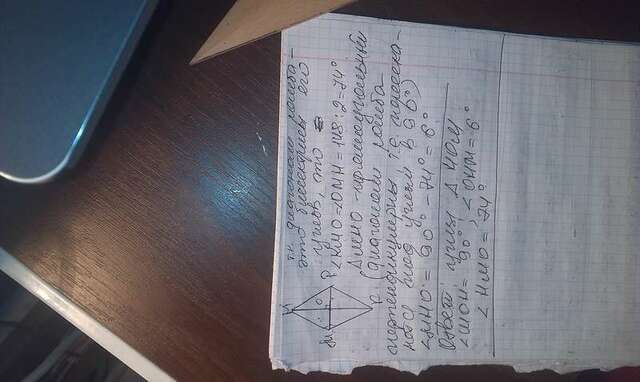 т.к. диагонали ромба -
это биссектрисы его
углов, то
∠HMO = ∠OMN = 148 : 2 = 74°
ΔMHO - прямоугольный
(диагонали ромба
перпендикулярны, т.е. пересека-
ются под углом в 90°)
∠MHO = 90° - 74° = 16°
Ответ: углы Δ HOM
∠MOH = 90°, ∠OHM = 16°
∠HMO = 74°
H
M
O
P